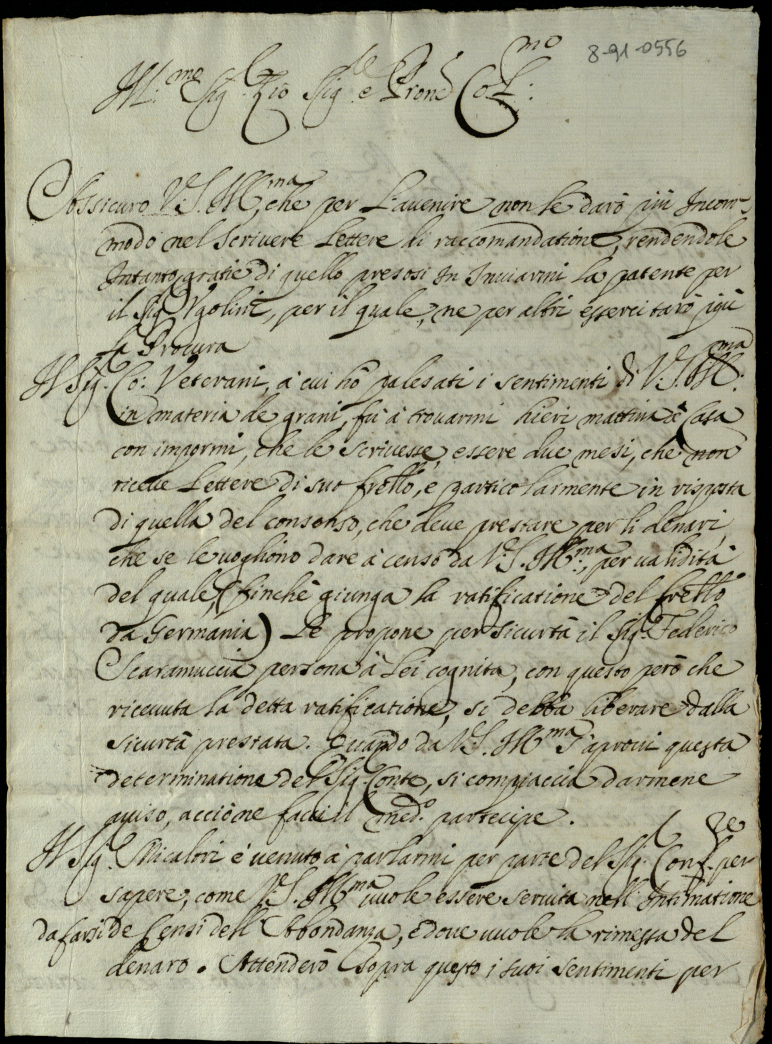 8-91-0556
Ill.mo Sig.r Zio Sig.re e Pron Col.mo
Assicuro V.S. Ill.ma, che per l'avenire non le darò più Incom-
modo nel scrivere Lettere di raccomandatione, rendendole
Intanto gratie di quello presosi In Inviarmi la patente per
il Sig.r Ugolini, per il quale, ne per altri esserci tarò più
la Procura
Il Sig.r Co: Veterani, à cui hò palesati i sentimenti di V.S. Ill.ma
in materia de grani, fù à trovarmi hieri mattina à Casa
con impormi, che le scrivesse, essere due mesi, che non
riceve Lettere di suo frello, e particolarmente in risposta
di quella del consenso, che deve prestare per li denari,
che se le vogliono dare à censo da V.S. Ill.ma, per validità
del quale, (finchè giunga la ratificatione del frello
da Germania) Le propone per sicurtà il Sig.r Federico
Scaramuccia persona à Lei cognita, con questo però che
ricevuta la detta ratificatione, si debba liberare dalla
sicurtà prestata. Quando da V.S. Ill.ma s'aprovi questa
determinatione del Sig.r Conte, si compiaccia darmene
aviso, acciò ne facci il med.o partecipe.
Il Sig.r Micalori è venuto à parlarmi per parte del Sig.r Conf.re per
sapere, come V.S. Ill.ma vuole essere servita nell'Intimatione
da farsi de Censi dell'Abbondanza, e dove vuole la rimessa del
denaro. Attenderò sopra questo i suoi sentimenti per